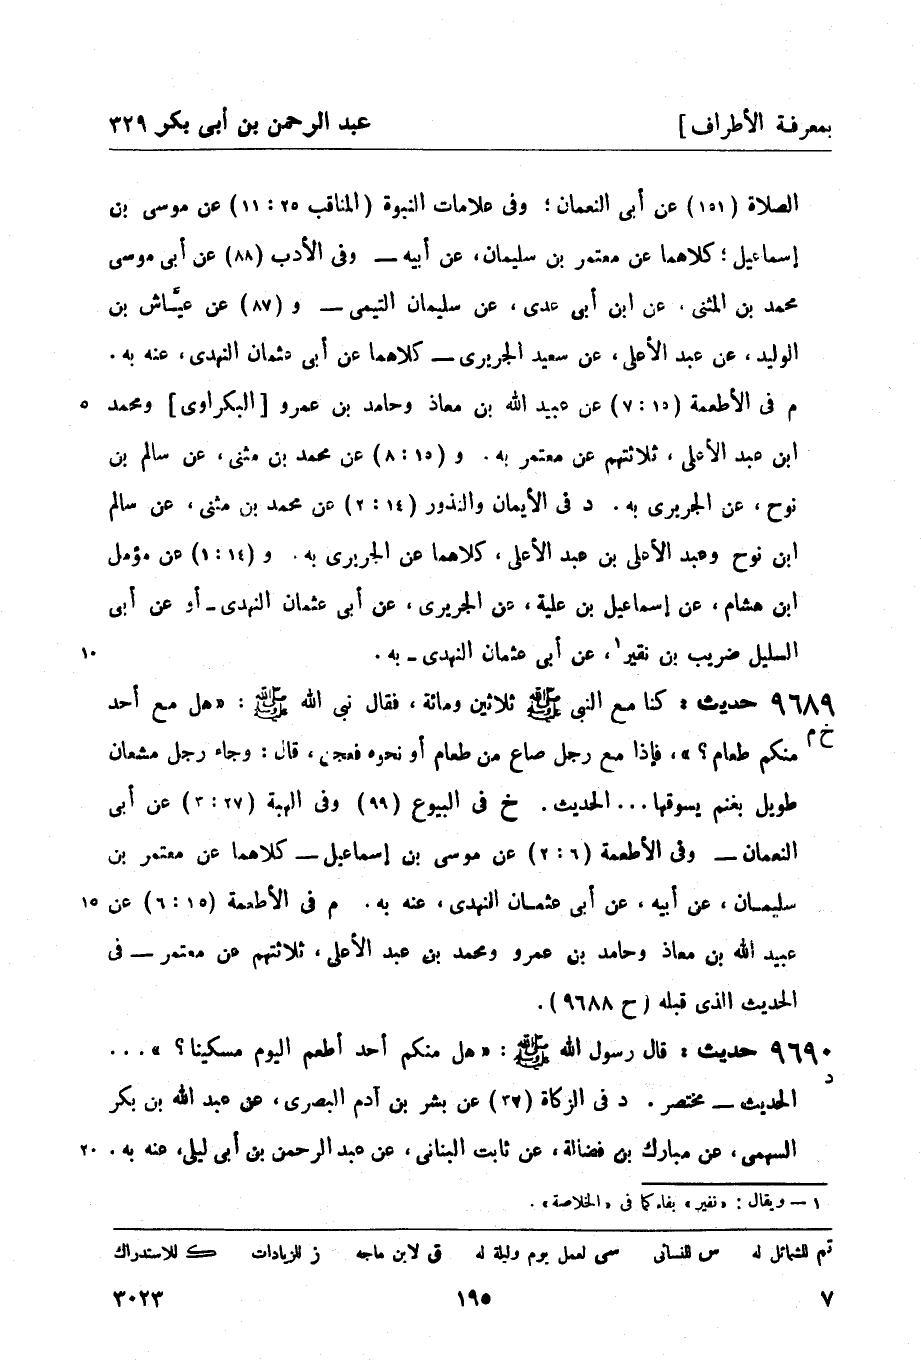 بمعرفة الأطراف] عبد الرحمن بن أبى بكر ٣٢٩
الصلاة (١٥١) عن أبى النعمان؛ وفى علامات النبوة (المناقب ٢٥: ١١) عن موسى بن
إسماعيل؛ كلاهما عن معتمر بن سليمان، عن أبيه ــ وفى الأدب (٨٨) عن أبى موسى
محمد بن المثنى، عن ابن أبى عدى، عن سليمان التيمى ــ و (٨٧) عن عيَّاش بن
الوليد، عن عبد الأعلى، عن سعيد الجريرى ــ كلاهما عن أبى عثمان النهدى، عنه به.
م فى الأطعمة (١٥: ٧) عن عبيد الله بن معاذ وحامد بن عمرو [البكراوى] ومحمد ٥
ابن عبد الأعلى، ثلاثتهم عن معتمر به. و (١٥: ٨) عن محمد بن مثنى، عن سالم بن
نوح، عن الجريرى به. د فى الأيمان والنذور (١٤: ٢) عن محمد بن مثنى، عن سالم
ابن نوح وعبد الأعلى بن عبد الأعلى، كلاهما عن الجريرى به. و (١٤: ١) عن مؤمل
ابن هشام، عن إسماعيل بن علية، عن الجريرى، عن أبى عثمان النهدى ـ أو عن أبى
السليل ضريب بن نقير١، عن أبى عثمان النهدى ـ به. ١٠
٩٦٨٩ حديث: كنا مع النبى ﷺ ثلاثين ومائة، فقال نبى الله ﷺ: «هل مع أحد
خ م منكم طعام؟»، فإذا مع رجل صاع من طعام أو نحوه فعجن، قال: وجاء رجل مشعان
طويل بغنم يسوقها... الحديث. خ فى البيوع (٩٩) وفى الهبة (٢٧: ٣) عن أبى
النعمان ــ وفى الأطعمة (٦: ٢) عن موسى بن إسماعيل ــ كلاهما عن معتمر بن
سليمان، عن أبيه، عن أبى عثمان النهدى، عنه به. م فى الأطعمة (١٥: ٦) عن ١٥
عبيد الله بن معاذ وحامد بن عمرو ومحمد بن عبد الأعلى، ثلاثتهم عن معتمر ــ فى
الحديث الذى قبله (ح ٩٦٨٨).
٩٦٩٠ حديث: قال رسول الله ﷺ: «هل منكم أحد أطعم اليوم مسكينا؟»...
د
الحديث ــ مختصر. د فى الزكاة (٣٧) عن بشر بن آدم البصرى، عن عبد الله بن بكر
السهمى، عن مبارك بن فضالة، عن ثابت البنانى، عن عبد الرحمن بن أبى ليلى، عنه به. ٢٠
١ ــ ويقال: «نفير» بفاء كما فى «الخلاصة».
تم للشمائل له س للنسائى سى لعمل يوم وليلة له ق لابن ماجه ز للزيادات ك للاستدراك
٧ ١٩٥ ٣٠٢٣